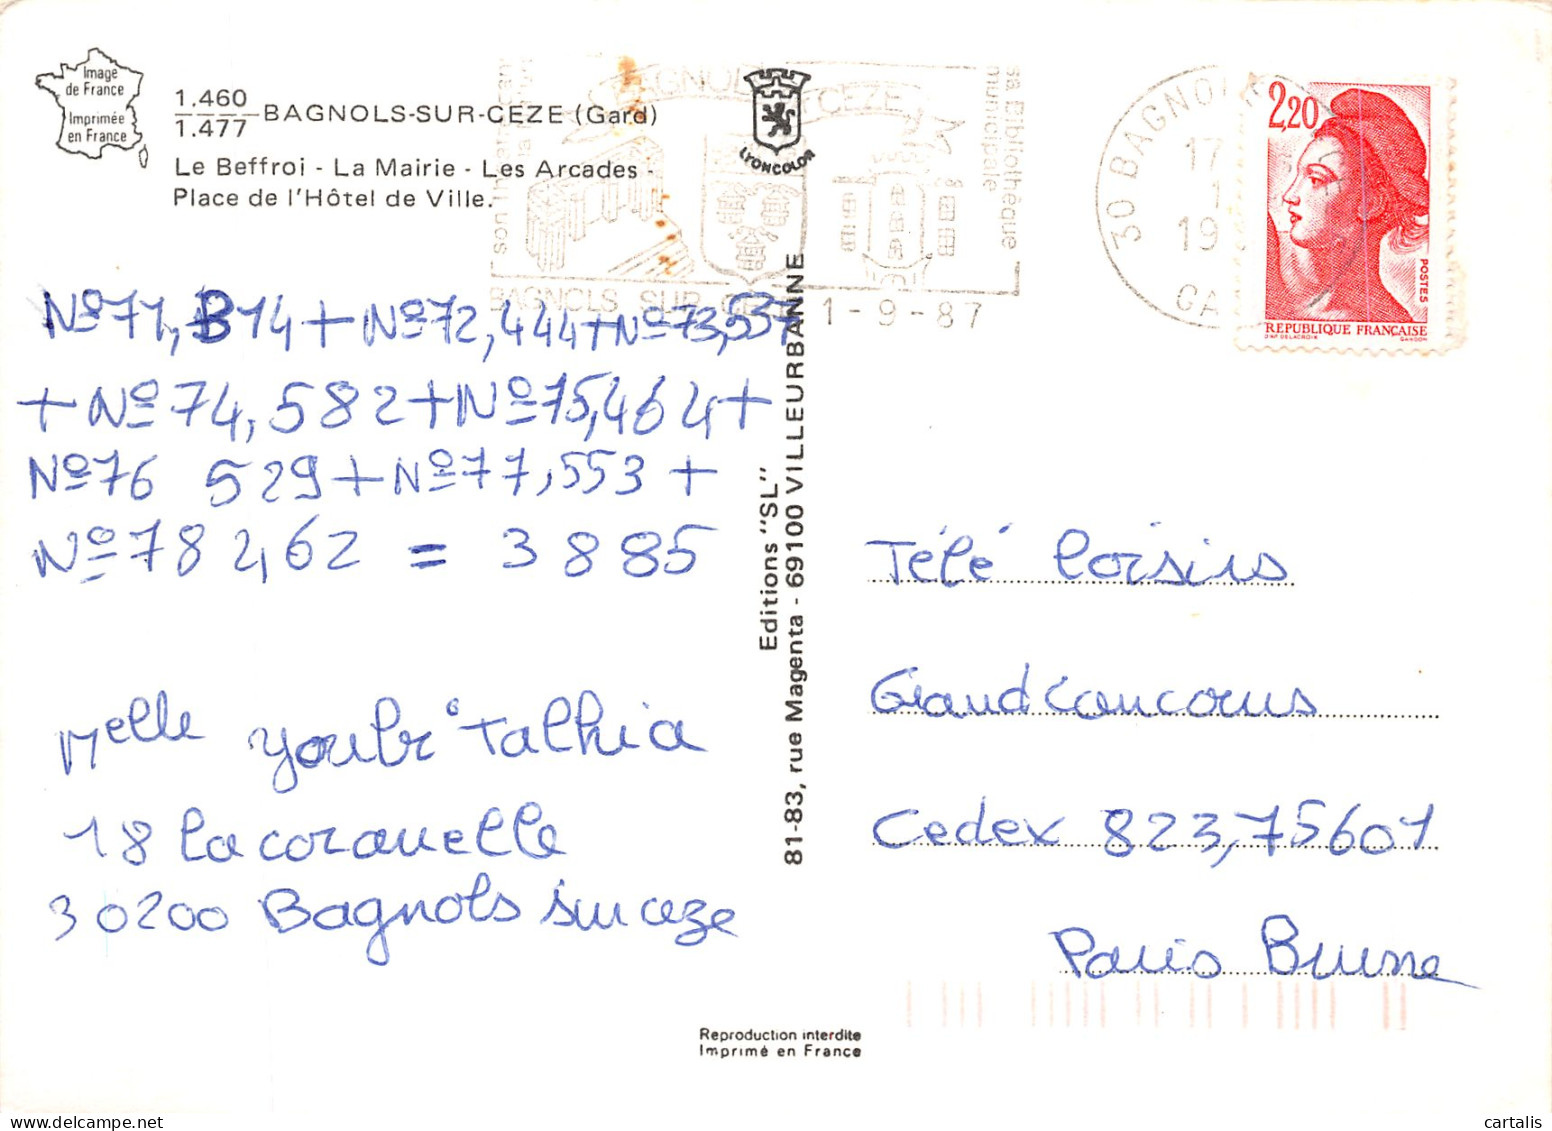 Image
de France
Imprimée
en France
1.460
1.477
BAGNOLS-SUR-CEZE (Gard)
Le Beffroi - La Mairie - Les Arcades -
Place de l'Hôtel de Ville.
LYONCOLOR
sa Bibliothèque
municipale
BAGNOLS SUR CEZE 1-9-87
30 BAGNOL
17
1
19
GA
2,20
POSTES
REPUBLIQUE FRANÇAISE
D'AP. DELACROIX GANDON
Nº71, 314 + Nº72, 444 + Nº73, 537
+ Nº74, 582 + Nº75, 464 +
Nº76 529 + Nº77, 553 +
Nº78 462 = 3885
Melle Youbi Talhia
18 la coravelle
30200 Bagnols sur ceze
Editions "SL"
81-83, rue Magenta - 69100 VILLEURBANNE
Télé loisirs
Grand Concours
Cedex 823, 75601
Paris Brune
Reproduction interdite
Imprimé en France
cartalis